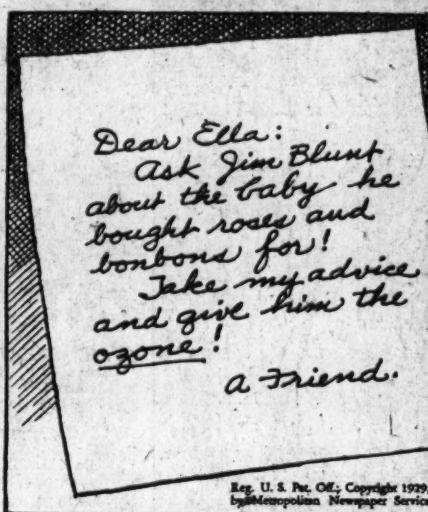 Dear Ella:
Ask Jim Blunt
about the baby he
bought roses and
bonbons for!
Take my advice
and give him the
ozone!
A Friend.
Reg. U. S. Pat. Off.; Copyright 1929,
by Metropolitan Newspaper Service